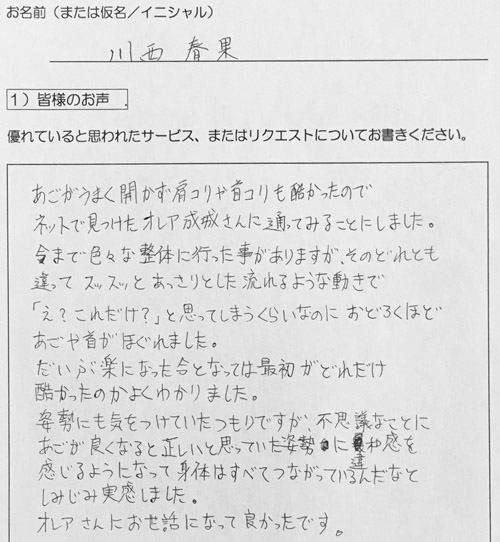 お名前（または仮名／イニシャル）
川西 春果
１）皆様のお声
優れていると思われたサービス、またはリクエストについてお書きください。
あごがうまく開かず肩コリや首コリも酷かったので
ネットで見つけたオレア成城さんに通ってみることにしました。
今まで色々な整体に行った事がありますが、そのどれとも
違ってスッスッとあっさりとした流れるような動きで
「え？これだけ？」と思ってしまうくらいなのにおどろくほど
あごや首がほぐれました。
だいぶ楽になった今となっては最初がどれだけ
酷かったのかよくわかりました。
姿勢にも気をつけていたつもりですが、不思議なことに
あごが良くなると正しいと思っていた姿勢に違和感を
感じるようになって身体はすべてつながっているんだなと
しみじみ実感しました。
オレアさんにお世話になって良かったです。